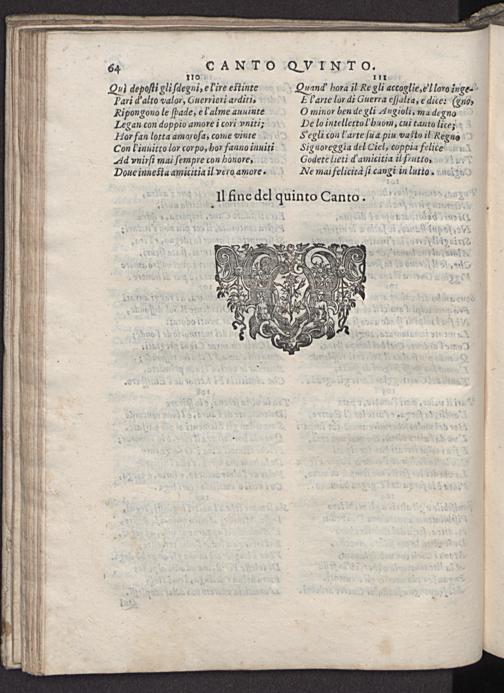 64
CANTO QVINTO.
110
Quì deposti gli sdegni, e l'ire estinte
Pari d'alto valor, Guerrieri arditi,
Ripongono le spade, e l'alme auuinte
Legan con doppio amore i cori vniti;
Hor fan lotta amorosa, come vinte
Con l'inuitto lor corpo, hor fanno inuiti
Ad vnirsi mai sempre con honore,
Doue innesta amicitia il vero amore.
111
Quand' hora il Re gli accoglie, e'l loro inge-
E l'arte lor di Guerra essalta, e dice: (gno,
O minor ben de gli Angioli, ma degno
De lo intelletto l'huom, cui tanto lice;
S'egli con l'arte sù'a piu vasto il Regno
Signoreggia del Ciel, coppia felice
Godete lieti d'amicitia il frutto,
Ne mai felicità si cangi in lutto.
Il fine del quinto Canto.